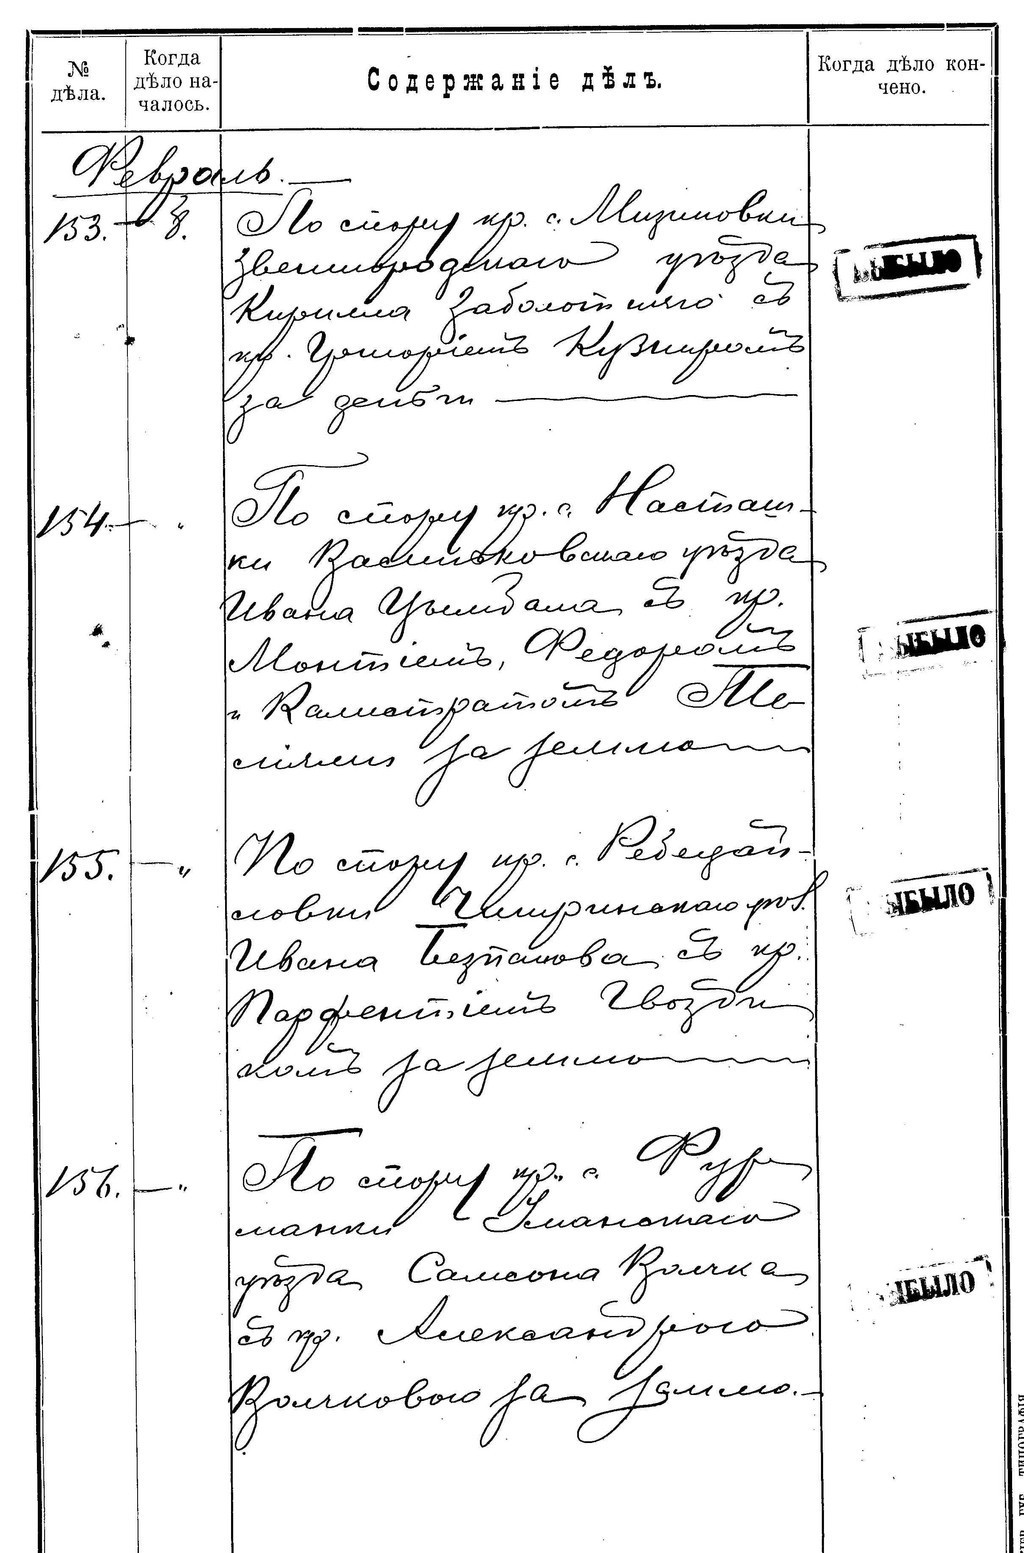 № дѣла.
Когда дѣло на-чалось.
Содержаніе дѣлъ.
Когда дѣло кон-чено.
Февраль.
153. 8. По спору кр. с. Мизиновки
Звенигородскаго уѣзда
Кирилла Заболотняго съ
кр. Григоріемъ Кушниромъ
за деньги
ВЫБЫЛО
154 — „ По спору кр. с. Насташ-
ки Васильковскаго уѣзда
Ивана Цымбала съ кр.
Монтіемъ, Федоромъ
и Калистратомъ Те-
сіями за землю
ВЫБЫЛО
155. — „ По спору кр. с. Ребедай-
ловки Чигиринскаго уѣз.
Ивана Безпалова съ кр.
Парфентіемъ Гвозди
комъ за землю
ВЫБЫЛО
156. — „ По спору кр. с. Фур
манки Уманскаго
уѣзда Самсона Волчка
съ кр. Александрою
Волчковою за землю.
ВЫБЫЛО
ТИПОГРАФІЯ